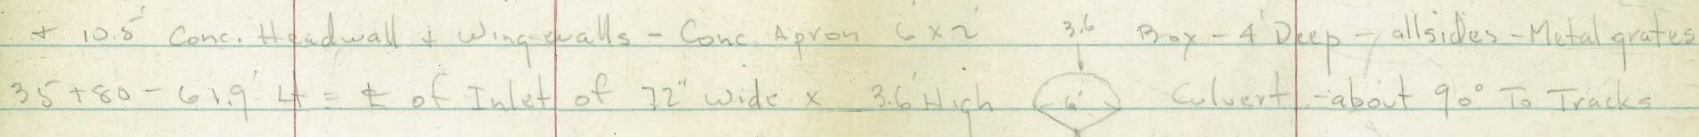 + 10.5' Conc. Headwall & Wingwalls - Conc. Apron 6' x 2' 3.6 Box - 4' Deep - allsides - Metal grates
35+80 - 61.9' Lt = ℄ of Inlet of 72" Wide x 3.6' High 6' Culvert - about 90° To Tracks